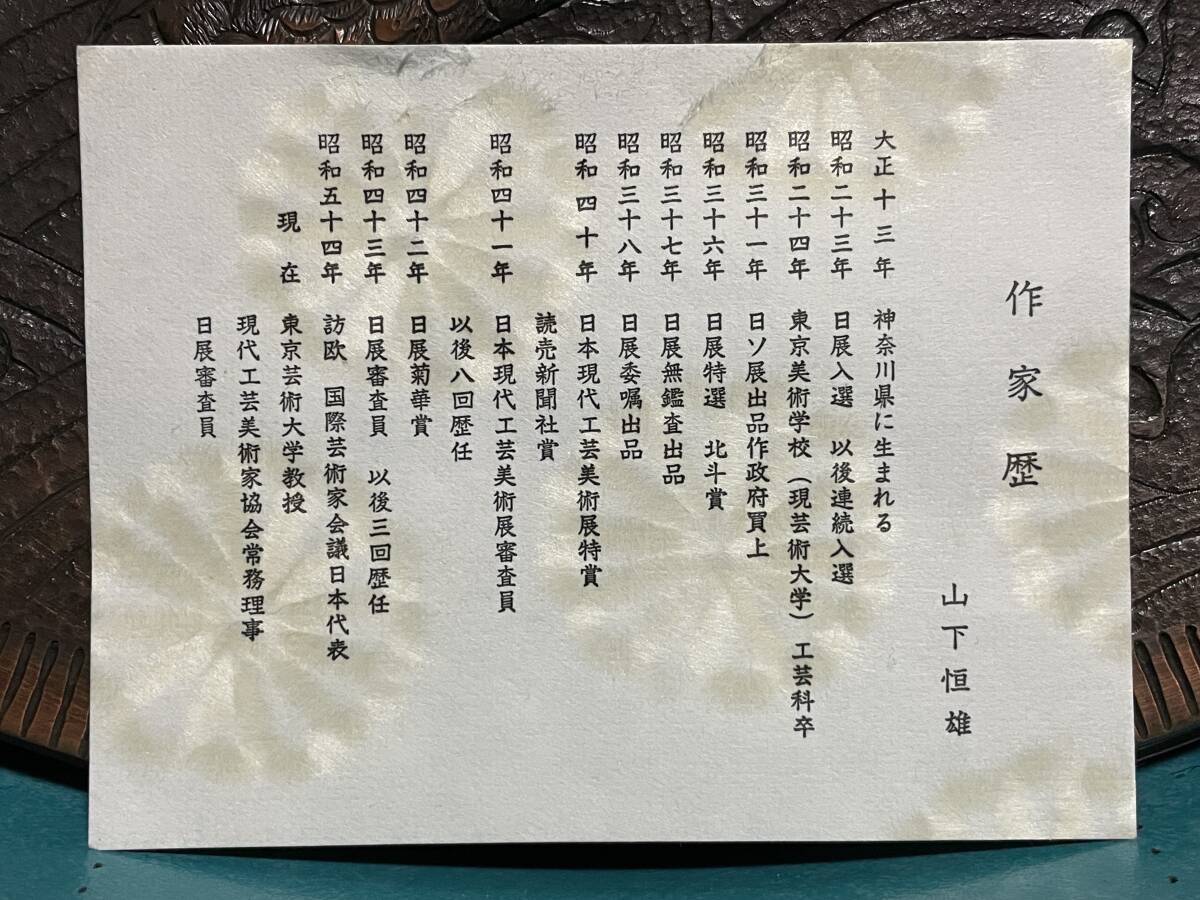 作家歴
山下恒雄
大正十三年 神奈川県に生まれる
昭和二十三年 日展入選 以後連続入選
昭和二十四年 東京美術学校（現芸術大学）工芸科卒
昭和三十一年 日ソ展出品作政府買上
昭和三十六年 日展特選 北斗賞
昭和三十七年 日展無鑑査出品
昭和三十八年 日展委嘱出品
昭和四十年 日本現代工芸美術展特賞
読売新聞社賞
昭和四十一年 日本現代工芸美術展審査員
以後八回歴任
昭和四十二年 日展菊華賞
昭和四十三年 日展審査員 以後三回歴任
昭和五十四年 訪欧 国際芸術家会議日本代表
現在 東京芸術大学教授
現代工芸美術家協会常務理事
日展審査員